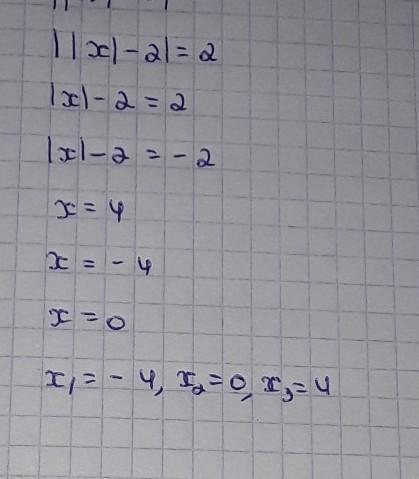 ||x|-2|=2
|x|-2=2
|x|-2=-2
x=4
x=-4
x=0
x₁=-4, x₂=0, x₃=4